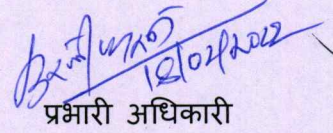 18/02/2022
प्रभारी अधिकारी